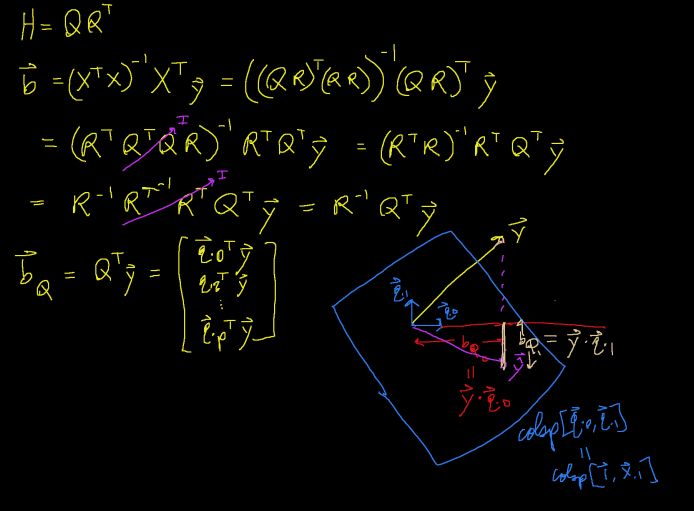 H = QQᵀ
b⃗ = (XᵀX)⁻¹ Xᵀ y⃗ = ((QR)ᵀ(QR))⁻¹ (QR)ᵀ y⃗
= (Rᵀ QᵀQ R)⁻¹ Rᵀ Qᵀ y⃗ = (RᵀR)⁻¹ Rᵀ Qᵀ y⃗
I
= R⁻¹ Rᵀ⁻¹ Rᵀ Qᵀ y⃗ = R⁻¹ Qᵀ y⃗
I
b⃗_Q = Qᵀ y⃗ = [ q⃗.₀ᵀ y⃗
q⃗.₂ᵀ y⃗
⋮
q⃗.ₚᵀ y⃗ ]
y⃗
q⃗.₁
q⃗.₀
b_Q₀
=
y⃗ · q⃗.₀
b_Q₁ = y⃗ · q⃗.₁
colsp[q⃗.₀, q⃗.₁]
=
colsp[1⃗, x⃗.₁]